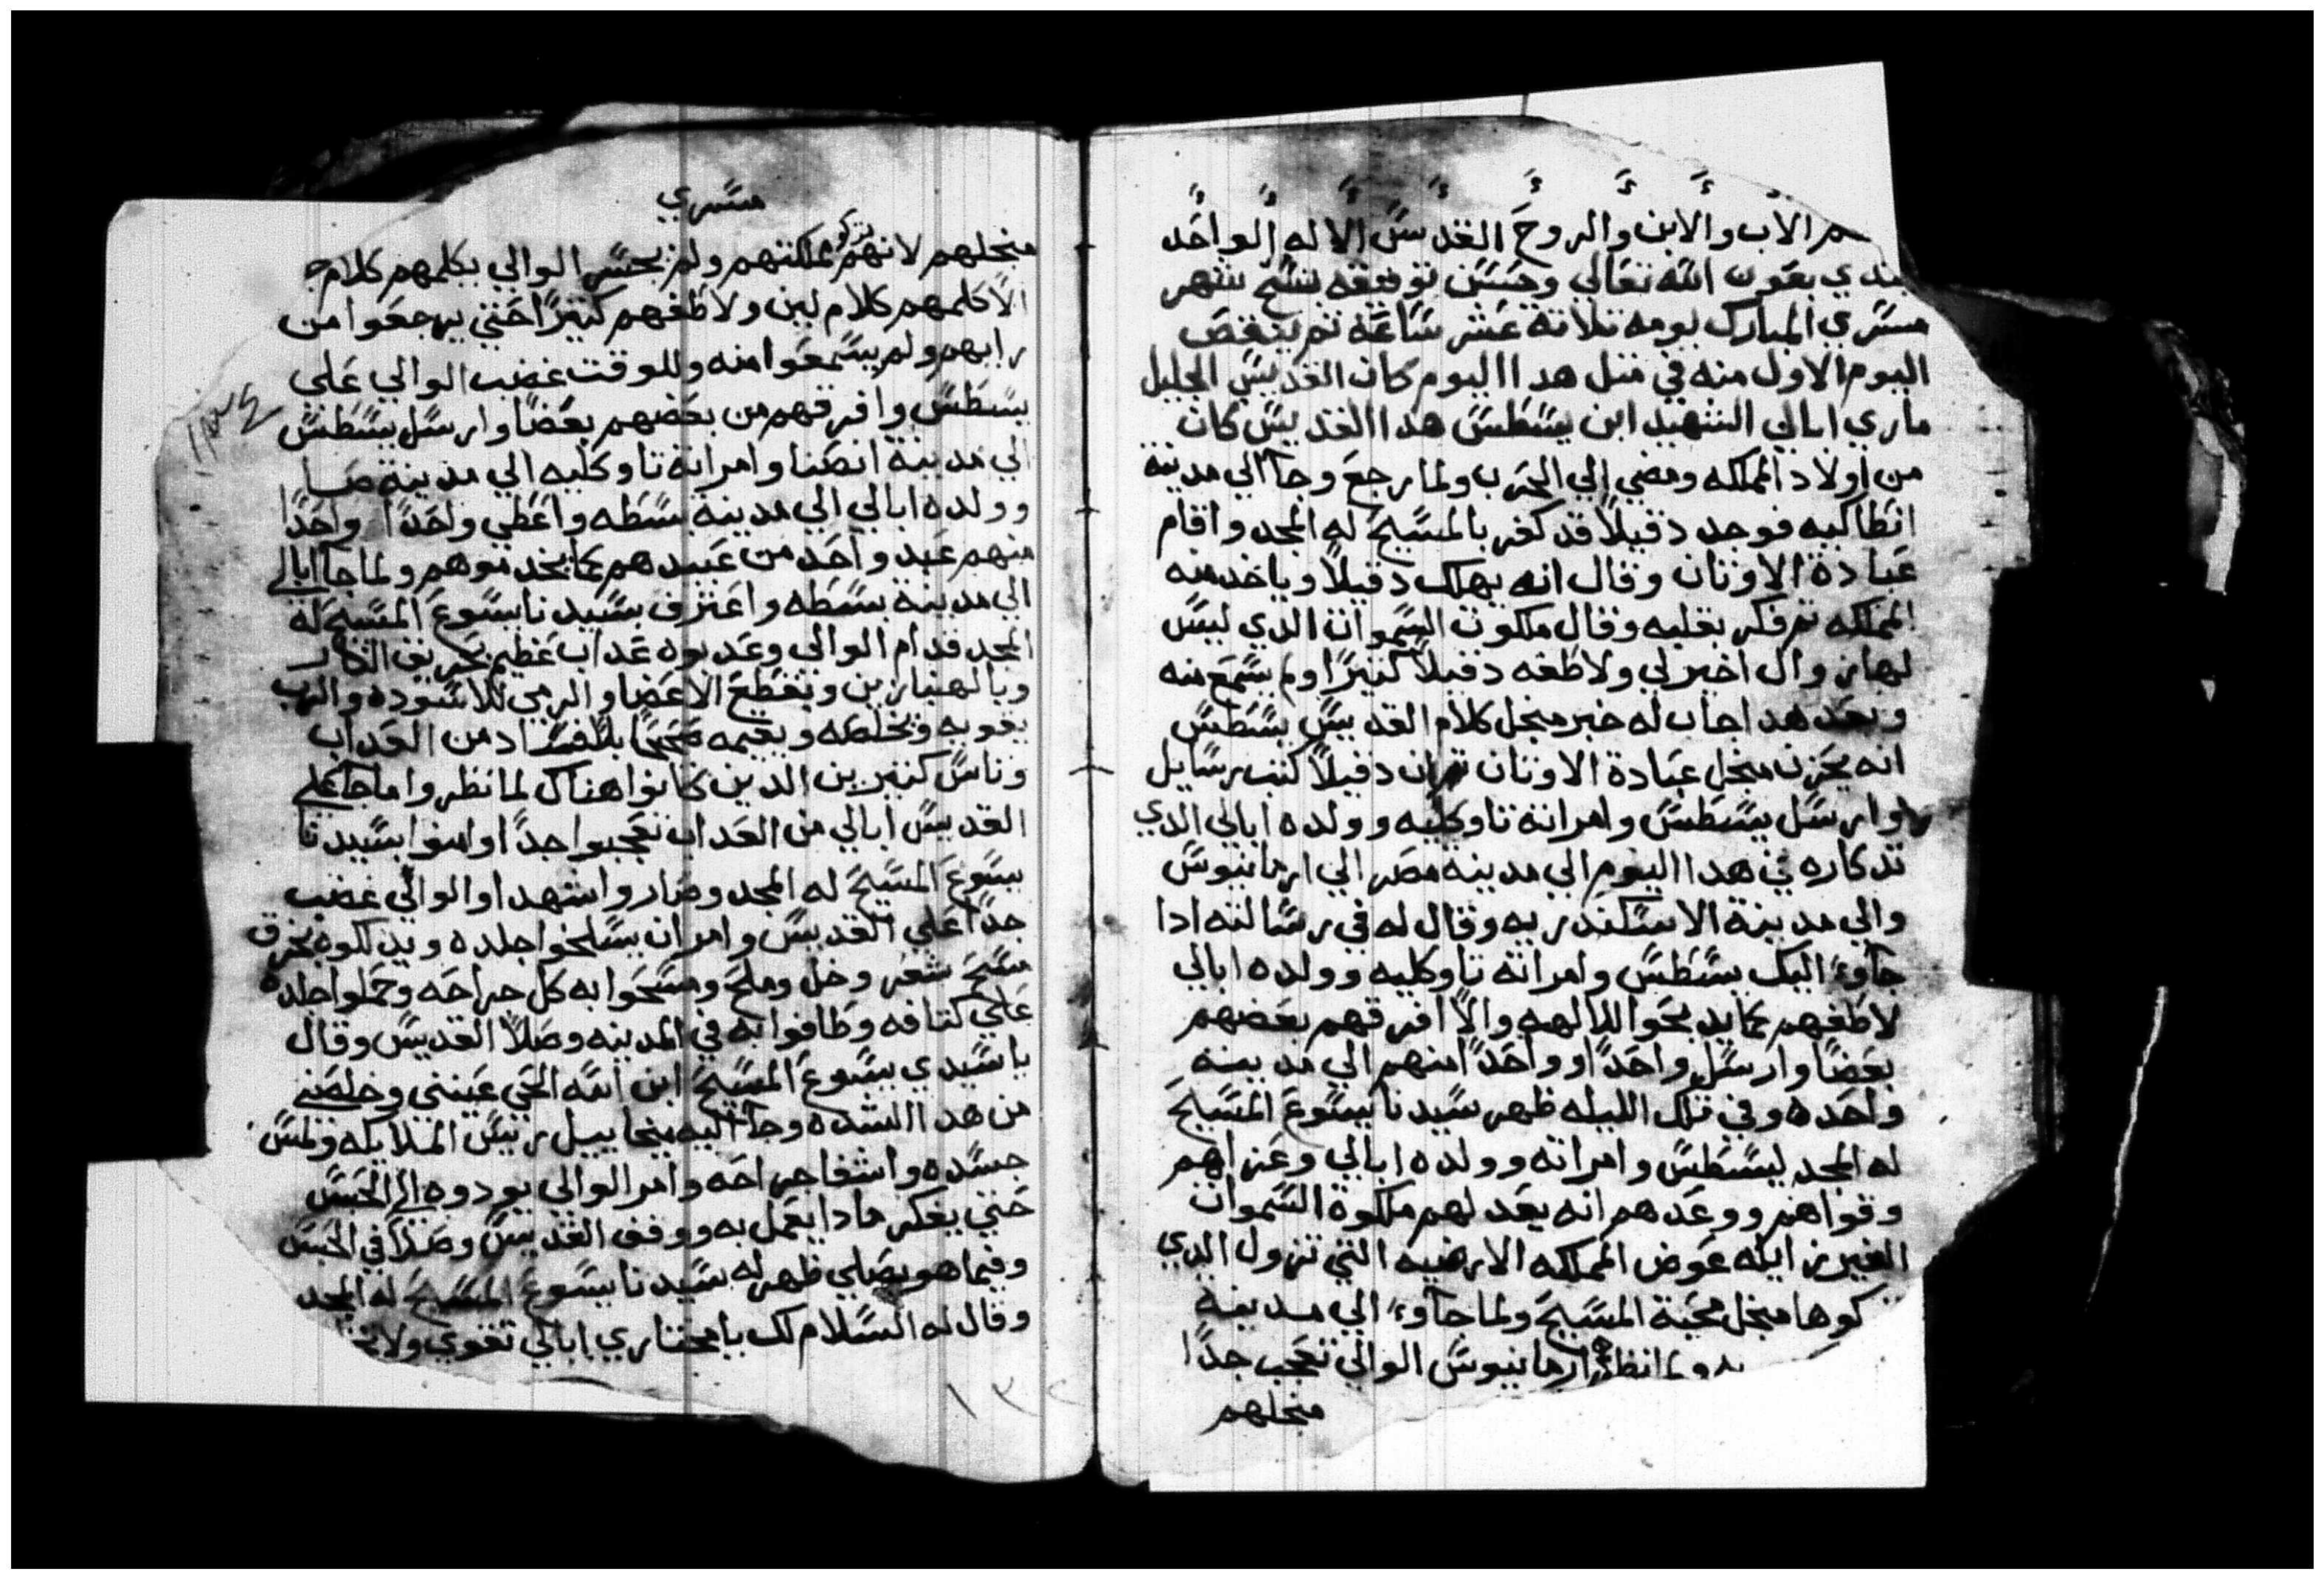 الاب والابن والروح القدس الاله الواحد
بعون الله تعالي وحسن توفيقه بنسخ شهر
مسري المبارك يومه تلاتة عشر ساعه تم ينقص
اليوم الاول منه في متل هدا اليوم كان القديس الجليل
ماري ابالي الشهيد ابن يسطس هدا القديس كان
من اولاد المملكه ومضي الي الحرب ولما رجع وجآ الي مدينة
انطاكيه فوجد دقيلاً قد كفر بالمسيح له المجد واقام
عبادة الاوتان وقال انه يهلك دقيلاً وياخد منه
المملكه تم فكر بقلبه وقال ملكوت السموات الدي ليس
لها زوال اخير لي ولاطفه دقيلاً كتيرًا ولم يسمع منه
وبعد هدا جاب له خبر منجل كلام القديس يسطس
انه يحزن منجل عبادة الاوتان دقيلاً كتب رسايل
وارسل يسطس وامراته تاوكليه وولده ابالي الدي
تدكاره في هدا اليوم الي مدينة مصر الي ارمانيوس
والي مدينة الاسكندريه وقال له في رسالته ادا
جآوء اليك يسطس وامراته تاوكليه وولده ابالي
لاطفهم كما يدبحوا للالهه والاً افرقهم بعضهم
بعضًا وارسل واحدًا وواحدًا منهم الي مدينة
واحده وفي تلك الليله ظهر سيدنا يسوع المسيح
له المجد ليسطس وامراته وولده ابالي وعزاهم
وقواهم ووعدهم انه يعد لهم ملكوة السموات
الغير زايله عوض المملكه الارضيه التي تزول الدي
كوها منجل محبة المسيح ولما جآوء الي مدينة
ولما نظره ارمانيوس الوالي تعجب جدًا
منجلهم
مسري
منجلهم لانهم تركو مملكتهم ولم يجسر الوالي يكلمهم كلام
الاً كلمهم كلام لين ولاطفهم كتيرًا حتي يرجعوا من
رايهم ولم يسمعوا منه وللوقت غضب الوالي على
يسطس وافرقهم من بعضهم بعضًا وارسل يسطس
الي مدينة انصنا وامراته تاوكليه الي مدينة صا
وولده ابالي الي مدينة بسطه واعطي واحدًا واحدًا
منهم عبد واحد من عبيدهم كما يخدموهم ولما جآ ابالي
الي مدينة بسطه واعترف بسيدنا يسوع المسيح له
المجد قدام الوالي وعدبوه عداب عظيم بحريق النار
وبالهنبازين وبتقطع الاعضا والرمي للاسوده والرب
يقويه ويخلصه ويقيمه صحيحًا بلا فساد من العداب
وناس كتيرين الدين كانوا هناك لما نظروا ما جآ علي
القديس ابالي من العداب تعجبوا جدًا وامنوا بسيدنا
يسوع المسيح له المجد وصاروا شهدا والوالي غضب
جدًا علي القديس وامر ان يسلخوا جلده ويدلكوه بخرق
مسح شعر وخل وملح ومسحوا به كل جراحه وحملوا جلده
علي كتافه وطافوا به في المدينه وصلاً القديس وقال
يا سيدي يسوع المسيح ابن الله الحي عينني وخلصني
من هدا الشده وجآ اليه ميخاييل رييس الملايكه ولمس
جسده واشفا جراحه وامر الوالي يودوه الي الحبس
حتي يفكر مادا يعمل به ووقف القديس وصلاً في الحبس
وفيما هو يصلي ظهر له سيدنا يسوع المسيح له المجد
وقال له السلام لك يا مختاري ابالي تقوي ولا